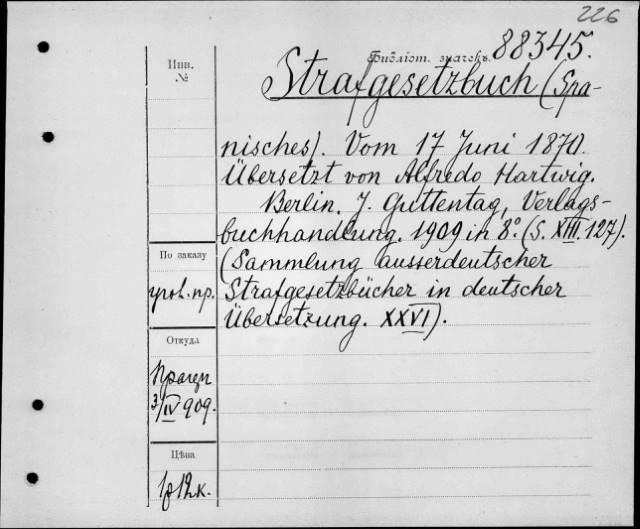 226
Библіот. значекъ. 88345.
Инв.
№
Strafgesetzbuch (Spa-
nisches). Vom 17 Juni 1870.
Übersetzt von Alfredo Hartwig.
Berlin. J. Guttentag, Verlags-
buchhandlung. 1909 in 8º. (S. XIII. 127).
(Sammlung ausserdeutscher
Strafgesetzbücher in deutscher
Übersetzung. XXVI).
По заказу
угол. пр.
Откуда
3/IV 909.
Цѣна
1р 12к.